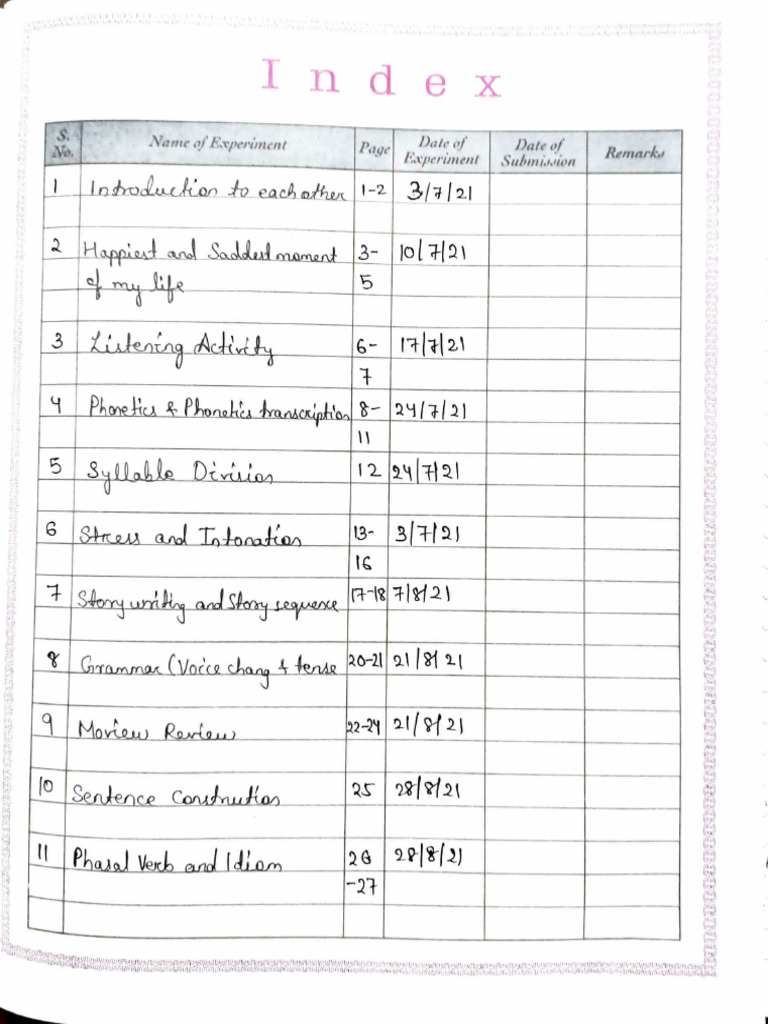 Index
S. No. Name of Experiment Page Date of Experiment Date of Submission Remarks
1 Introduction to each other 1-2 3/7/21
2 Happiest and Saddest moment 3- 10/7/21
of my life 5
3 Listening Activity 6- 17/7/21
7
4 Phonetics & Phonetics transcription 8- 24/7/21
11
5 Syllable Division 12 24/7/21
6 Stress and Intonation 13- 3/7/21
16
7 Story writing and Story sequence 17-18 7/8/21
8 Grammar (Voice chang & tense 20-21 21/8/21
9 Moview Review 22-24 21/8/21
10 Sentence Constrution 25 28/8/21
11 Phasal Verb and Idiom 26 28/8/21
-27